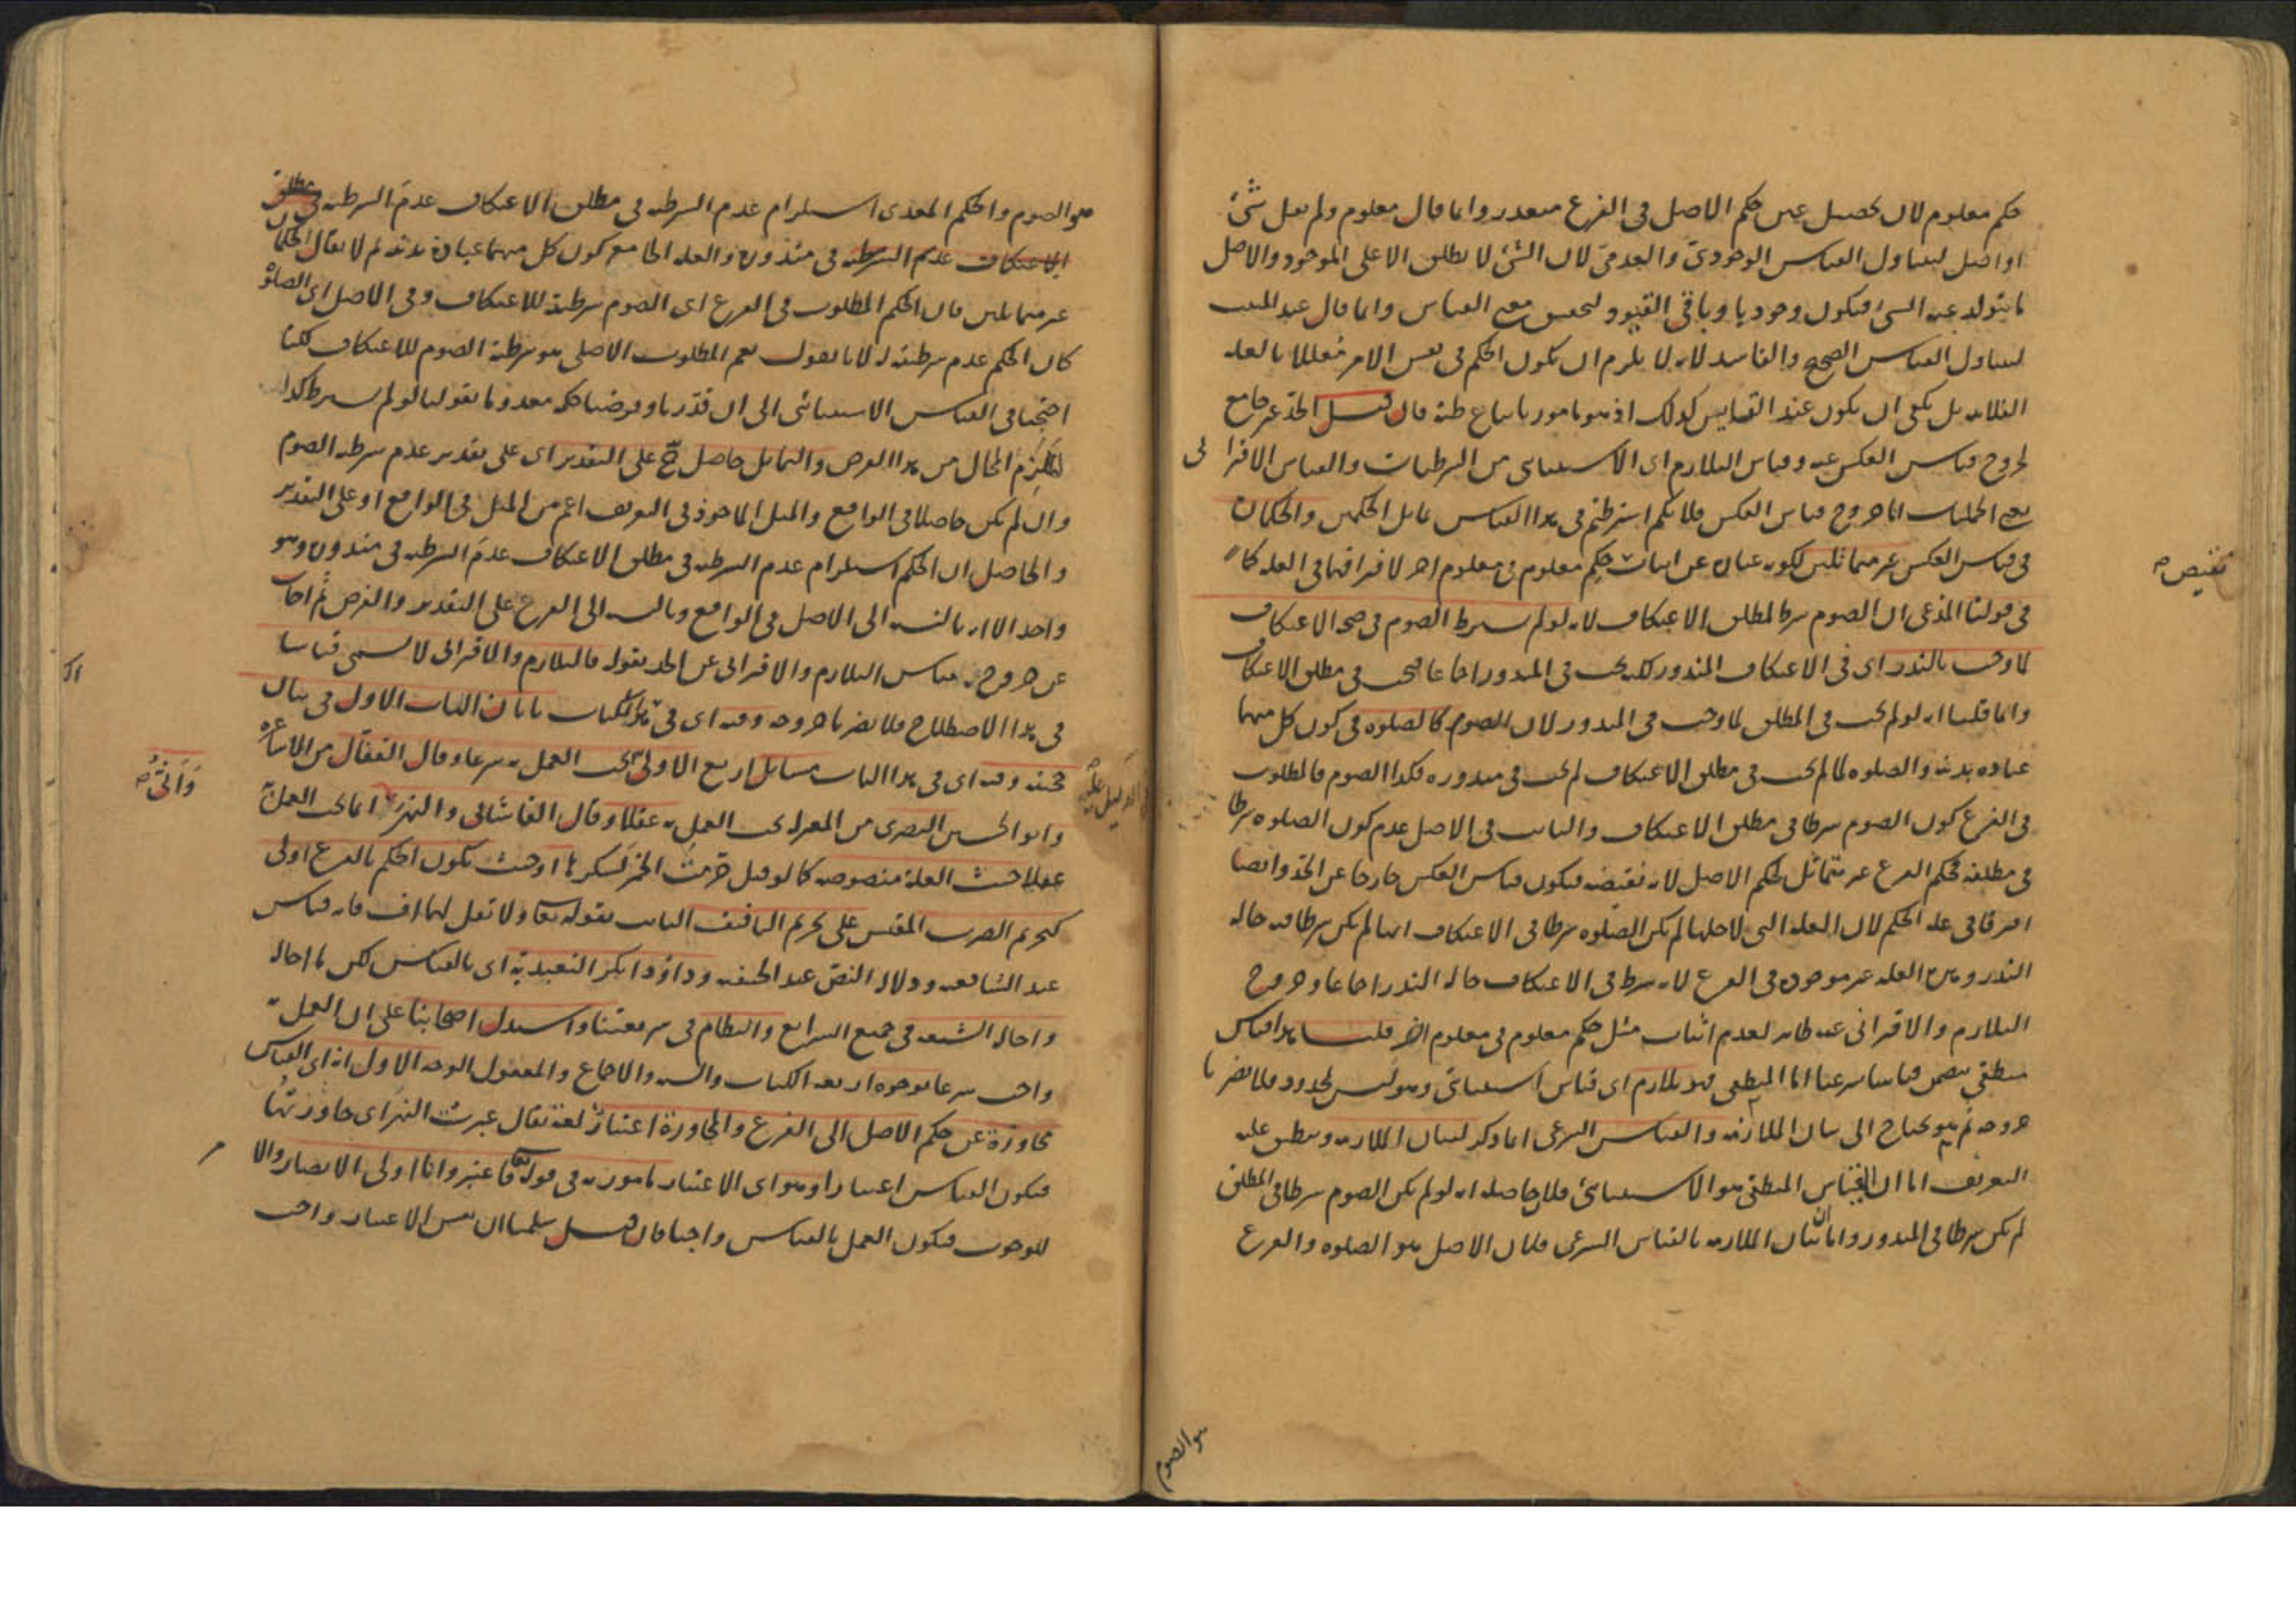 حكم معلوم لان تحصيل عين حكم الاصل فى الفرع متعذر وانما قال معلوم ولم يقل شئ
او اصل ليتناول القياس الوجودىّ والعدمىّ لان الشئ لا يطلق الا على الموجود والاصل
ما يتولد عنه الشئ فيكون وجوديا وباقى القيود لتحقيق معنى القياس وانما قال عند المثبت
ليتناول القياس الصحيح والفاسد لانه لا يلزم ان يكون الحكم فى نفس الامر معللا بالعلة
الفلانية بل يكفى ان يكون عند القايس كذلك اذ هو مامور باتباع ظنه فان قيل الحدّ غير جامع
لخروج قياس العكس عنه وقياس التلازم اى الاستثنائى من الشرطيات والقياس الاقترا نى
من الحمليات اما خروج قياس العكس فلانكم اشترطتم فى هذا القياس تماثل الحكمين والحكمان
فى قياس العكس غير متماثلين لكونه عبارة عن اثبات نقيض حكم معلوم فى معلوم اخر لافتراقهما فى العلة كما
فى قولنا المدّعى ان الصوم شرط لمطلق الاعتكاف لانه لو لم يشترط الصوم فى صحة الاعتكاف
لما وجب بالنذر اى فى الاعتكاف المنذور لكنه يجب فى المنذور اجماعا فيجب فى مطلق الاعتكاف
وانما قلنا انه لو لم يجب فى المطلق لما وجب فى المنذور لان الصوم كالصلوة فى كون كل منهما
عبادة بدنية والصلوة لما لم يجب فى مطلق الاعتكاف لم يجب فى منذوره فكذا الصوم فالمطلوب
فى الفرع كون الصوم شرطا فى مطلق الاعتكاف والثابت فى الاصل عدم كون الصلوة شرطا
فى مطلقه فحكم الفرع غير متماثل لحكم الاصل لانه نقيضه فيكون قياس العكس خارجا عن الحدّ وايضا
افترقا فى علة الحكم لان العلة التى لاجلها لم يكن الصلوة شرطا فى الاعتكاف انها لم يكن شرطا فيه حالة
النذر وهذه العلة غير موجودة فى الفرع لانه شرط فى الاعتكاف حالة النذر اجماعا وخروج
التلازم والاقترانى عنه ظاهر لعدم اثبات مثل حكم معلوم فى معلوم اخر قلنا هذا قياس
منطقى يتضمن قياسا شرعيا اما المنطقى فهو تلازم اى قياس استثنائى وهو ليس بمحدود فلا يضرنا
خروجه ثم هو يحتاج الى بيان الملازمة والقياس الشرعى انما ذكر لبيان الملازمة وينطبق عليه
التعريف اما ان القياس المنطقى هو الاستثنائى فلان حاصله انه لو لم يكن الصوم شرطا فى المطلق
لم يكن شرطا فى المنذور واما ان بيان الملازمة بالقياس الشرعى فلان الاصل هو الصلوة والفرع
نقيض
هو الصوم
هو الصوم والحكم المعدى استلزام عدم الشرطية فى مطلق الاعتكاف عدم الشرطية فى
فى منذوره والعلة الجامع كون كل منهما عبادة بدنية ثم لا يقال الحكمان
غير متماثلين فان الحكم المطلوب فى الفرع اى الصوم شرطيته للاعتكاف وفى الاصل اى الصلوة
كان الحكم عدم شرطيته له لانا نقول نعم المطلوب الاصلى هو شرطية الصوم للاعتكاف لكنا
احتجنا فى القياس الاستثنائى الى ان قدّرنا وفرضنا حكمه معدوما بقولنا لو لم يشترط كذا
للزم المحال من هذا الفرض والتماثل حاصل ح على التقدير اى على تقدير عدم شرطية الصوم
وان لم يكن حاصلا فى الواقع والمثل الماخوذ فى التعريف اعم من المثل فى الواقع او على التقدير
والحاصل ان الحكم استلزام عدم الشرطية فى مطلق الاعتكاف عدم الشرطية فى منذوره وهو
واحد الا انه بالنسبة الى الاصل فى الواقع وبالنسبة الى الفرع على التقدير والفرض ثم اجاب
عن خروج قياس التلازم والاقترانى عن الحد بقوله فالتلازم والاقترانى لا يسمى قياسا
فى هذا الاصطلاح فلا يضرنا خروجه وفيه اى فى هذا الكتاب بابان الباب الاول فى بيان
حجيته وفيه اى فى هذا الباب مسائل اربع الاولى يجب العمل به شرعا وقال القفّال من الاشاعرة
وابو الحسين البصرى من المعتزلة يجب العمل به عقلا وقال القاشانى والنهر انما يجب العمل به
عقلا حيث العلة منصوصة كما لو قيل حرّمت الخمر لسكرها او حيث يكون الحكم بالفرع اولى
كتحريم الضرب المقيس على تحريم التافيف الثابت بقوله تعالى ولا تقل لهما اف فانه قياس
عند الشافعية ودلالة النصّ عند الحنفية وداؤد انكر التعبد به اى بالقياس لكن ما احاله
واحاله الشيعة فى جميع الشرايع والنظام فى شريعتنا واستدل اصحابنا على ان العمل به
واجب شرعا بوجوه اربعة الكتاب والسنة والاجماع والمعقول الوجه الاول انه اى القياس
مجاوزة عن حكم الاصل الى الفرع والمجاوزة اعتبار لغة يقال عبرت النهر اى جاوزتها
فيكون القياس اعتبارا وهو اى الاعتبار مامور به فى قوله تعالى فاعتبروا يا اولى الابصار والامر
للوجوب فيكون العمل بالقياس واجبا فان قيل سلمنا ان نفس الاعتبار واجب